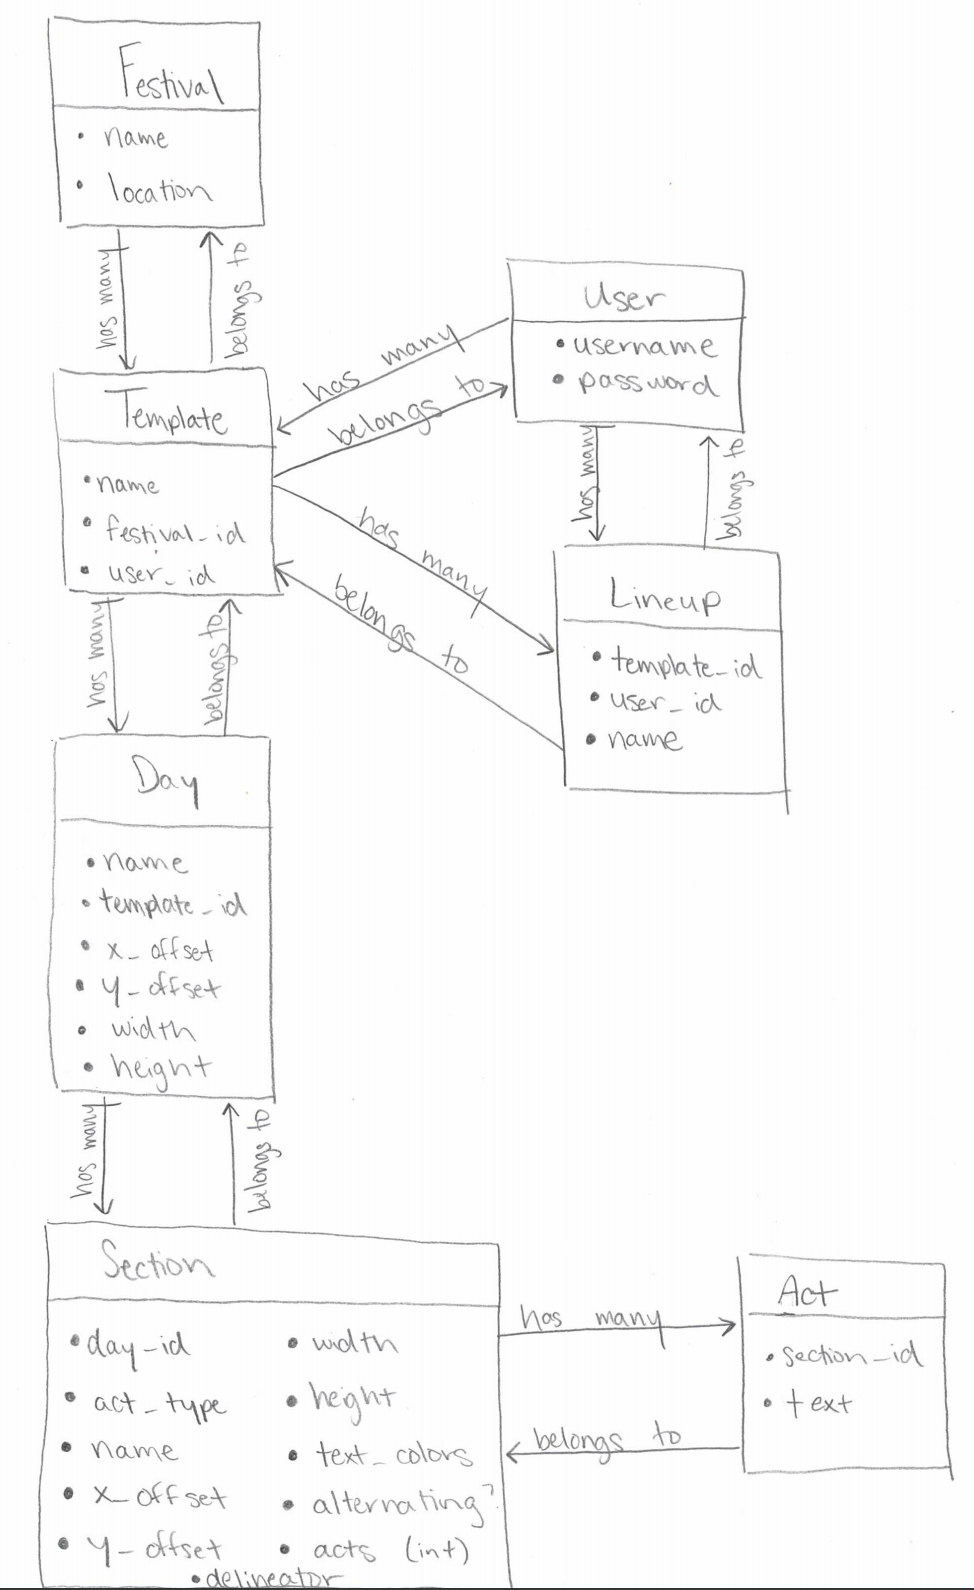 Festival
• name
• location
has many
belongs to
User
• username
• password
has many
belongs to
Template
• name
• festival_id
• user_id
has many
belongs to
has many
belongs to
Lineup
• template_id
• user_id
• name
has many
belongs to
Day
• name
• template_id
• x_offset
• y_offset
• width
• height
has many
belongs to
Section
• day_id
• act_type
• name
• x_offset
• y_offset
• width
• height
• text_colors
• alternating?
• acts (int)
• delineator
has many
belongs to
Act
• section_id
• text